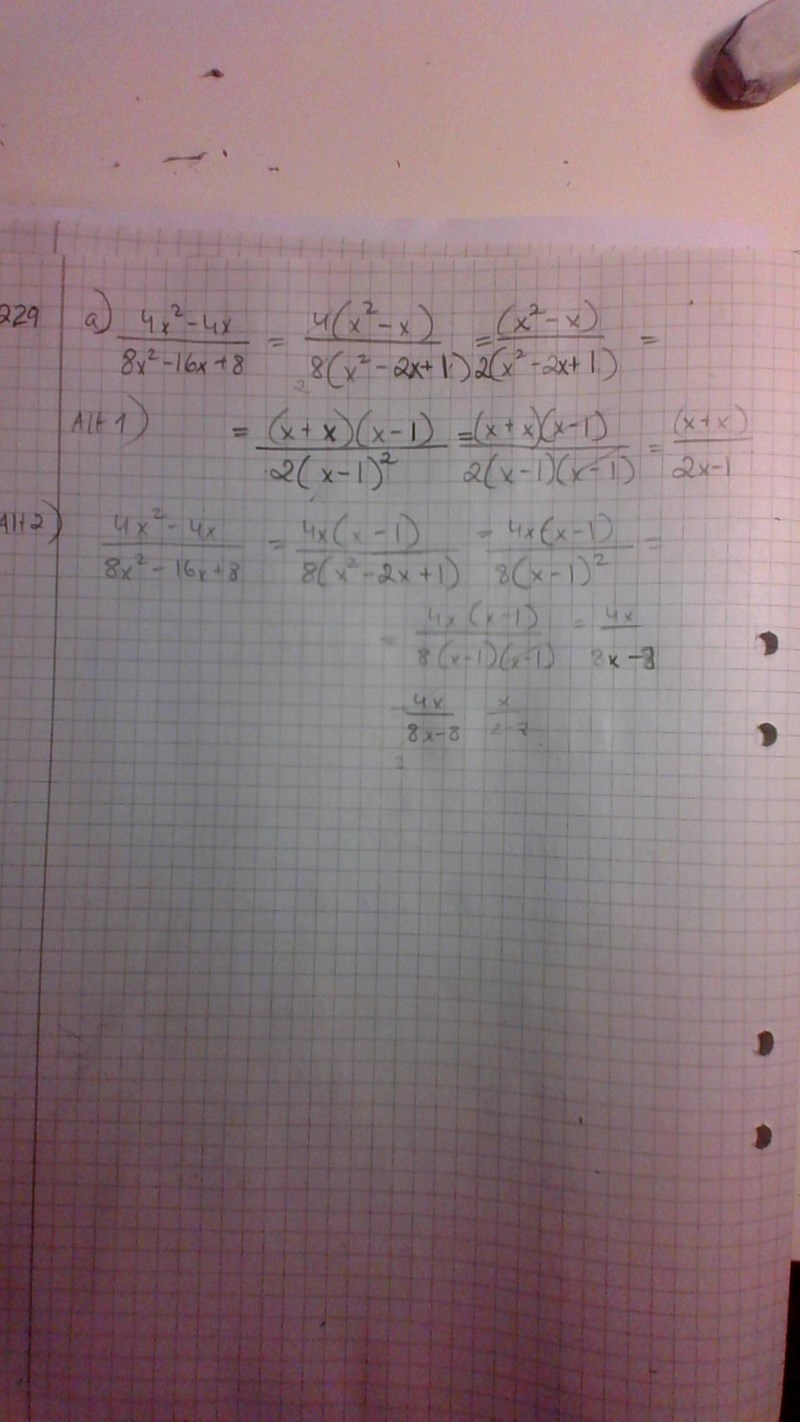 229 a) (4x²-4x)/(8x²-16x+8) = 4(x²-x)/8(x²-2x+1) = (x²-x)/2(x²-2x+1) =
Alt 1) = (x+x)(x-1)/2(x-1)² = (x+x)(x-1)/2(x-1)(x-1) = (x+x)/2x-1
Alt 2) (4x²-4x)/(8x²-16x+8) = 4x(x-1)/8(x²-2x+1) = 4x(x-1)/8(x-1)² =
= 4x(x-1)/8(x-1)(x-1) = 4x/8x-8
4x/8x-8 x/